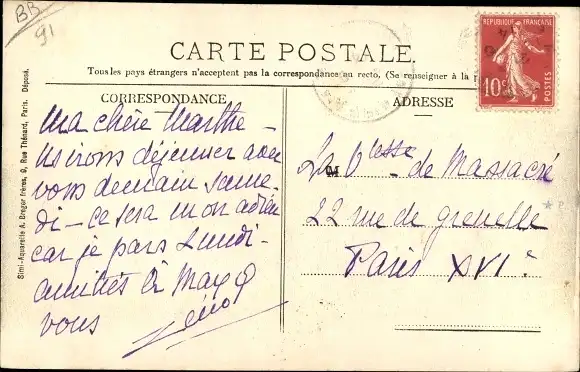 BB
91
CARTE POSTALE.
Tous les pays étrangers n'acceptent pas la correspondance au recto. (Se renseigner à la
CORRESPONDANCE
ADRESSE
REPUBLIQUE FRANÇAISE
10c
POSTES
Ma chère Marthe –
Ns irons déjeuner avec
vous demain same-
di – ce sera mon adieu
car je pars Lundi –
amitiés à Max &
vous
La Vtesse de Massacré
22 rue de grenelle
Paris XVIe
Simi-Aquarelle A. Breger frères, 9, Rue Thénard, Paris. Déposé.